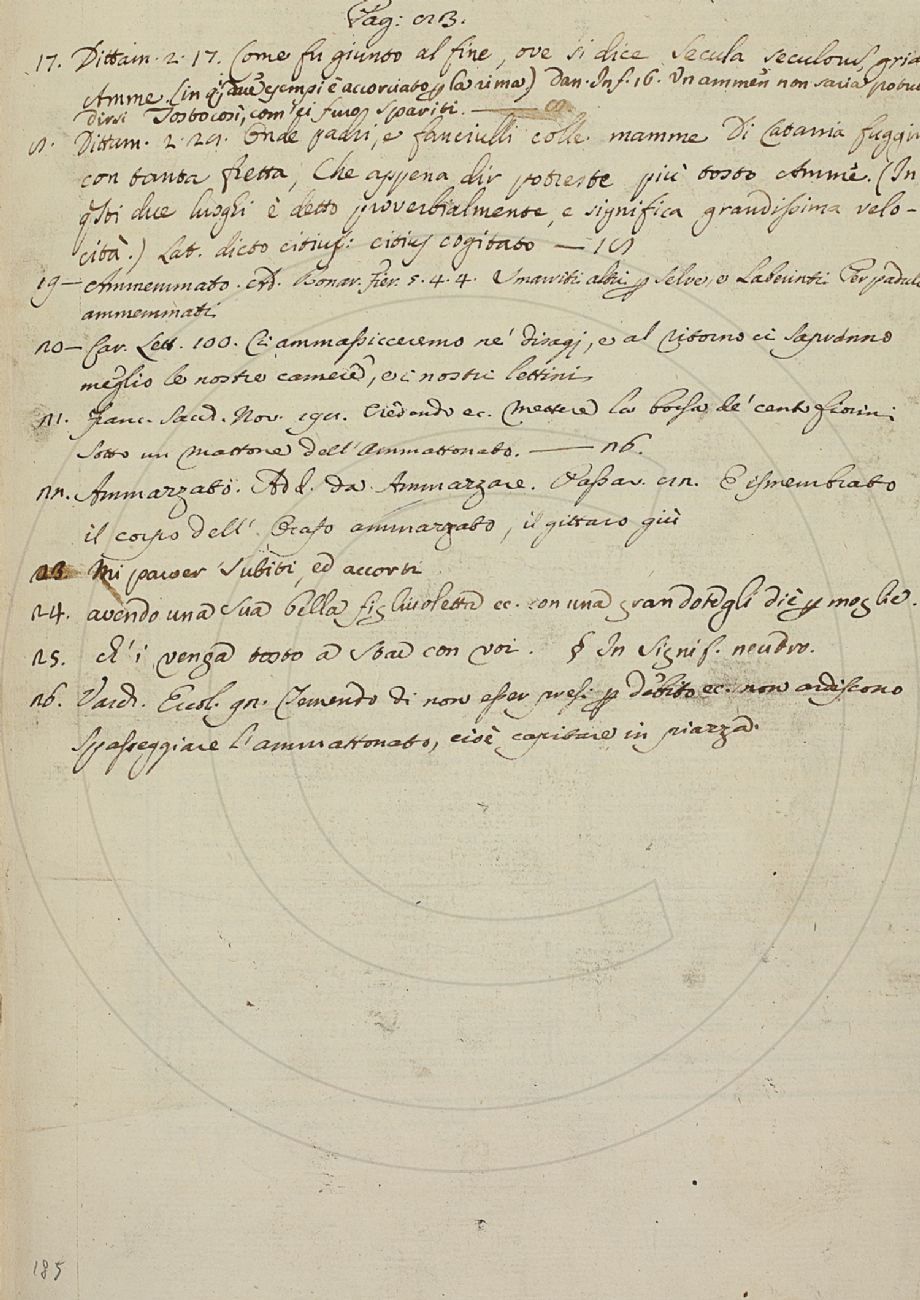 Pag: 123.
17. Dittam. 2. 17. Come fu giunto al fine, ove si dice Secula seculorus, gria
Amme. (in qsti due esempi è accorciato p la rima) Dan. Inf. 16. Un ammen non saria potu
dirsi Tosto così, com' ei furo spariti.
Dittam. 2. 29. Onde padri, e fanciulli colle mamme Di Catania fuggir
con tanta fretta, Che appena dir potreste più tosto Amme. (In
qsti due luoghi è detto proverbialmente, e significa grandissima velo-
cità.) Lat. dicto citius: citius cogitato — 18
19 — Ammemmato. Ad. Bonar. Fier. 5. 4. 4. Smarriti altri p selve, e Laberinti Per padul
ammemmati
20 — Car. Lett. 100. Ci ammassicceremo ne' disagj, e al ritorno ci sapranno
meglio le nostre camere, e i nostri lettini
21. Franc. Sacch. Nov. 198. Credendo ec. mettere la borsa de' cento fiorini
sotto un mattone dell' Ammattonato. — 26.
22. Ammazzato. Add. da Ammazzare. E ismembrato
il corpo dell' ammazzato, il gittaro giù
23. Mi parver subiti, ed accorti
24. avendo una sua bella figlivoletta ec. con una grandote gli diè p moglie.
25. ch' i venga tosto a star con voi. § In signif. neutro.
26. Varch. Ercol. 92. Temendo di non esser presi p debito ec. non ardiscono
spasseggiare l'ammattonato, cioè capitare in piazza.
185